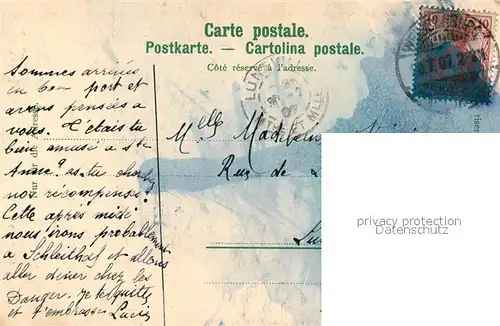 Carte postale.
Postkarte. — Cartolina postale.
Côté réservé à l'adresse.
Nur für die Adresse
10 10
LUNÉ
MLLE
07
Sommes arrivées
en bon port et
avons pensées a
vous. t'étais tu
bien amusé a Ste
Anne? as tu cherché
nos récompenses?
Cette après midi
nous irons probablement
a Schleithal et allons
aller diner chez les
Danger. Je te quitte
et t'embrasse Lucie
Melle Madeleine
Rue de
Lu
privacy protection
watermark